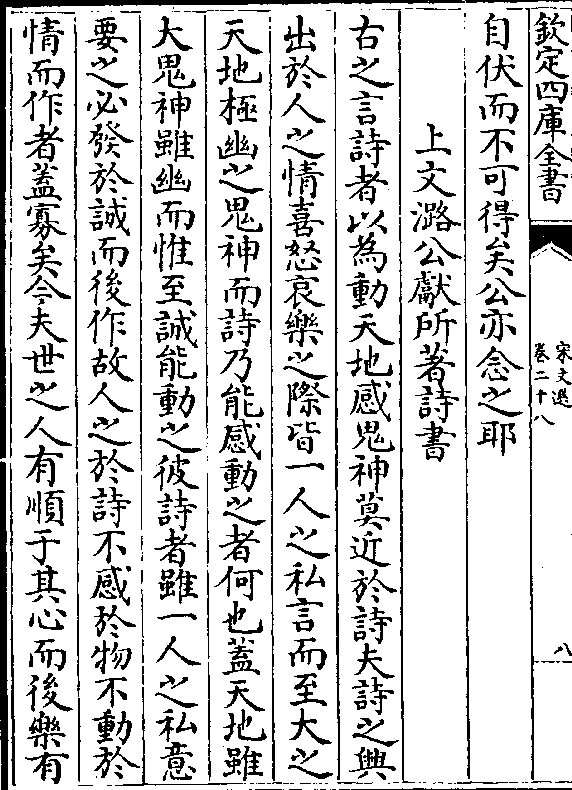 欽定四庫全書
宋文選
卷二十八
八
自伏而不可得矣公亦念之耶
上文潞公獻所著詩書
古之言詩者以為動天地感鬼神莫近於詩夫詩之興
出於人之情喜怒哀樂之際皆一人之私言而至大之
天地極幽之鬼神而詩乃能感動之者何也蓋天地雖
大鬼神雖幽而惟至誠能動之彼詩者雖一人之私意
要之必發於誠而後作故人之於詩不感於物不動於
情而作者蓋寡矣今夫世之人有順于其心而後樂有